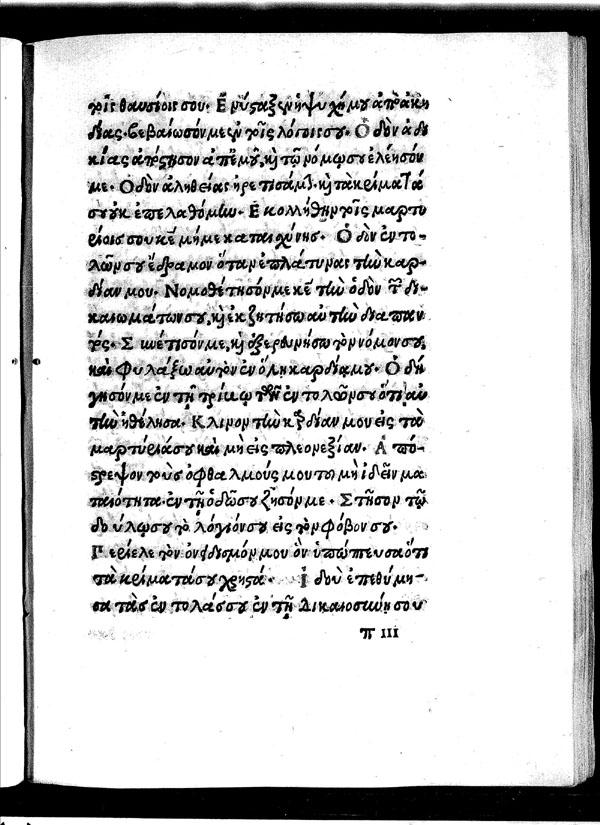 τοῖς θαυσίοις σου. Ἐνύσταξεν ἡ ψυχή μου ἀπὸ ἀκη
δίας. βεβαίωσόν με ἐν τοῖς λόγοις σου. Ὁδὸν ἀδι
κίας ἀπόστησον ἀπ' ἐμοῦ, καὶ τῷ νόμῳ σου ἐλέησόν
με. Ὁδὸν ἀληθείας ᾑρετισάμην. καὶ τὰ κρίματά
σου οὐκ ἐπελαθόμην. Ἐκολλήθην τοῖς μαρτυ
ρίοις σου κε μή με καταισχύνῃς. Ὁδὸν ἐντο-
λῶν σου ἔδραμον ὅταν ἐπλάτυνας τὴν καρ-
δίαν μου. Νομοθέτησόν με κε τὴν ὁδὸν τῶν δι-
καιωμάτων σου, καὶ ἐκζητήσω αὐτὴν διαπαν
τός. Συνέτισόν με, καὶ ἐξερευνήσω τὸν νόμον σου,
καὶ φυλάξω αὐτὸν ἐν ὅλῃ καρδίᾳ μου. Ὁδή
γησόν με ἐν τῇ τρίβῳ τῶν ἐντολῶν σου ὅτι αὐ
τὴν ἠθέλησα. Κλῖνον τὴν καρδίαν μου εἰς τὰ
μαρτύριά σου καὶ μὴ εἰς πλεονεξίαν. Ἀπό-
στρεψον τοὺς ὀφθαλμούς μου τοῦ μὴ ἰδεῖν μα
ταιότητα. ἐν τῇ ὁδῷ σου ζῆσόν με. Στῆσον τῷ
δούλῳ σου τὸ λόγιόν σου εἰς τὸν φόβον σου.
Περίελε τὸν ὀνειδισμόν μου ὃν ὑπώπτευσα ὅτι
τὰ κρίματά σου χρηστά. Ἰδοὺ ἐπεθύμη-
σα τὰς ἐντολάς σου ἐν τῇ δικαιοσύνῃ σου
π III